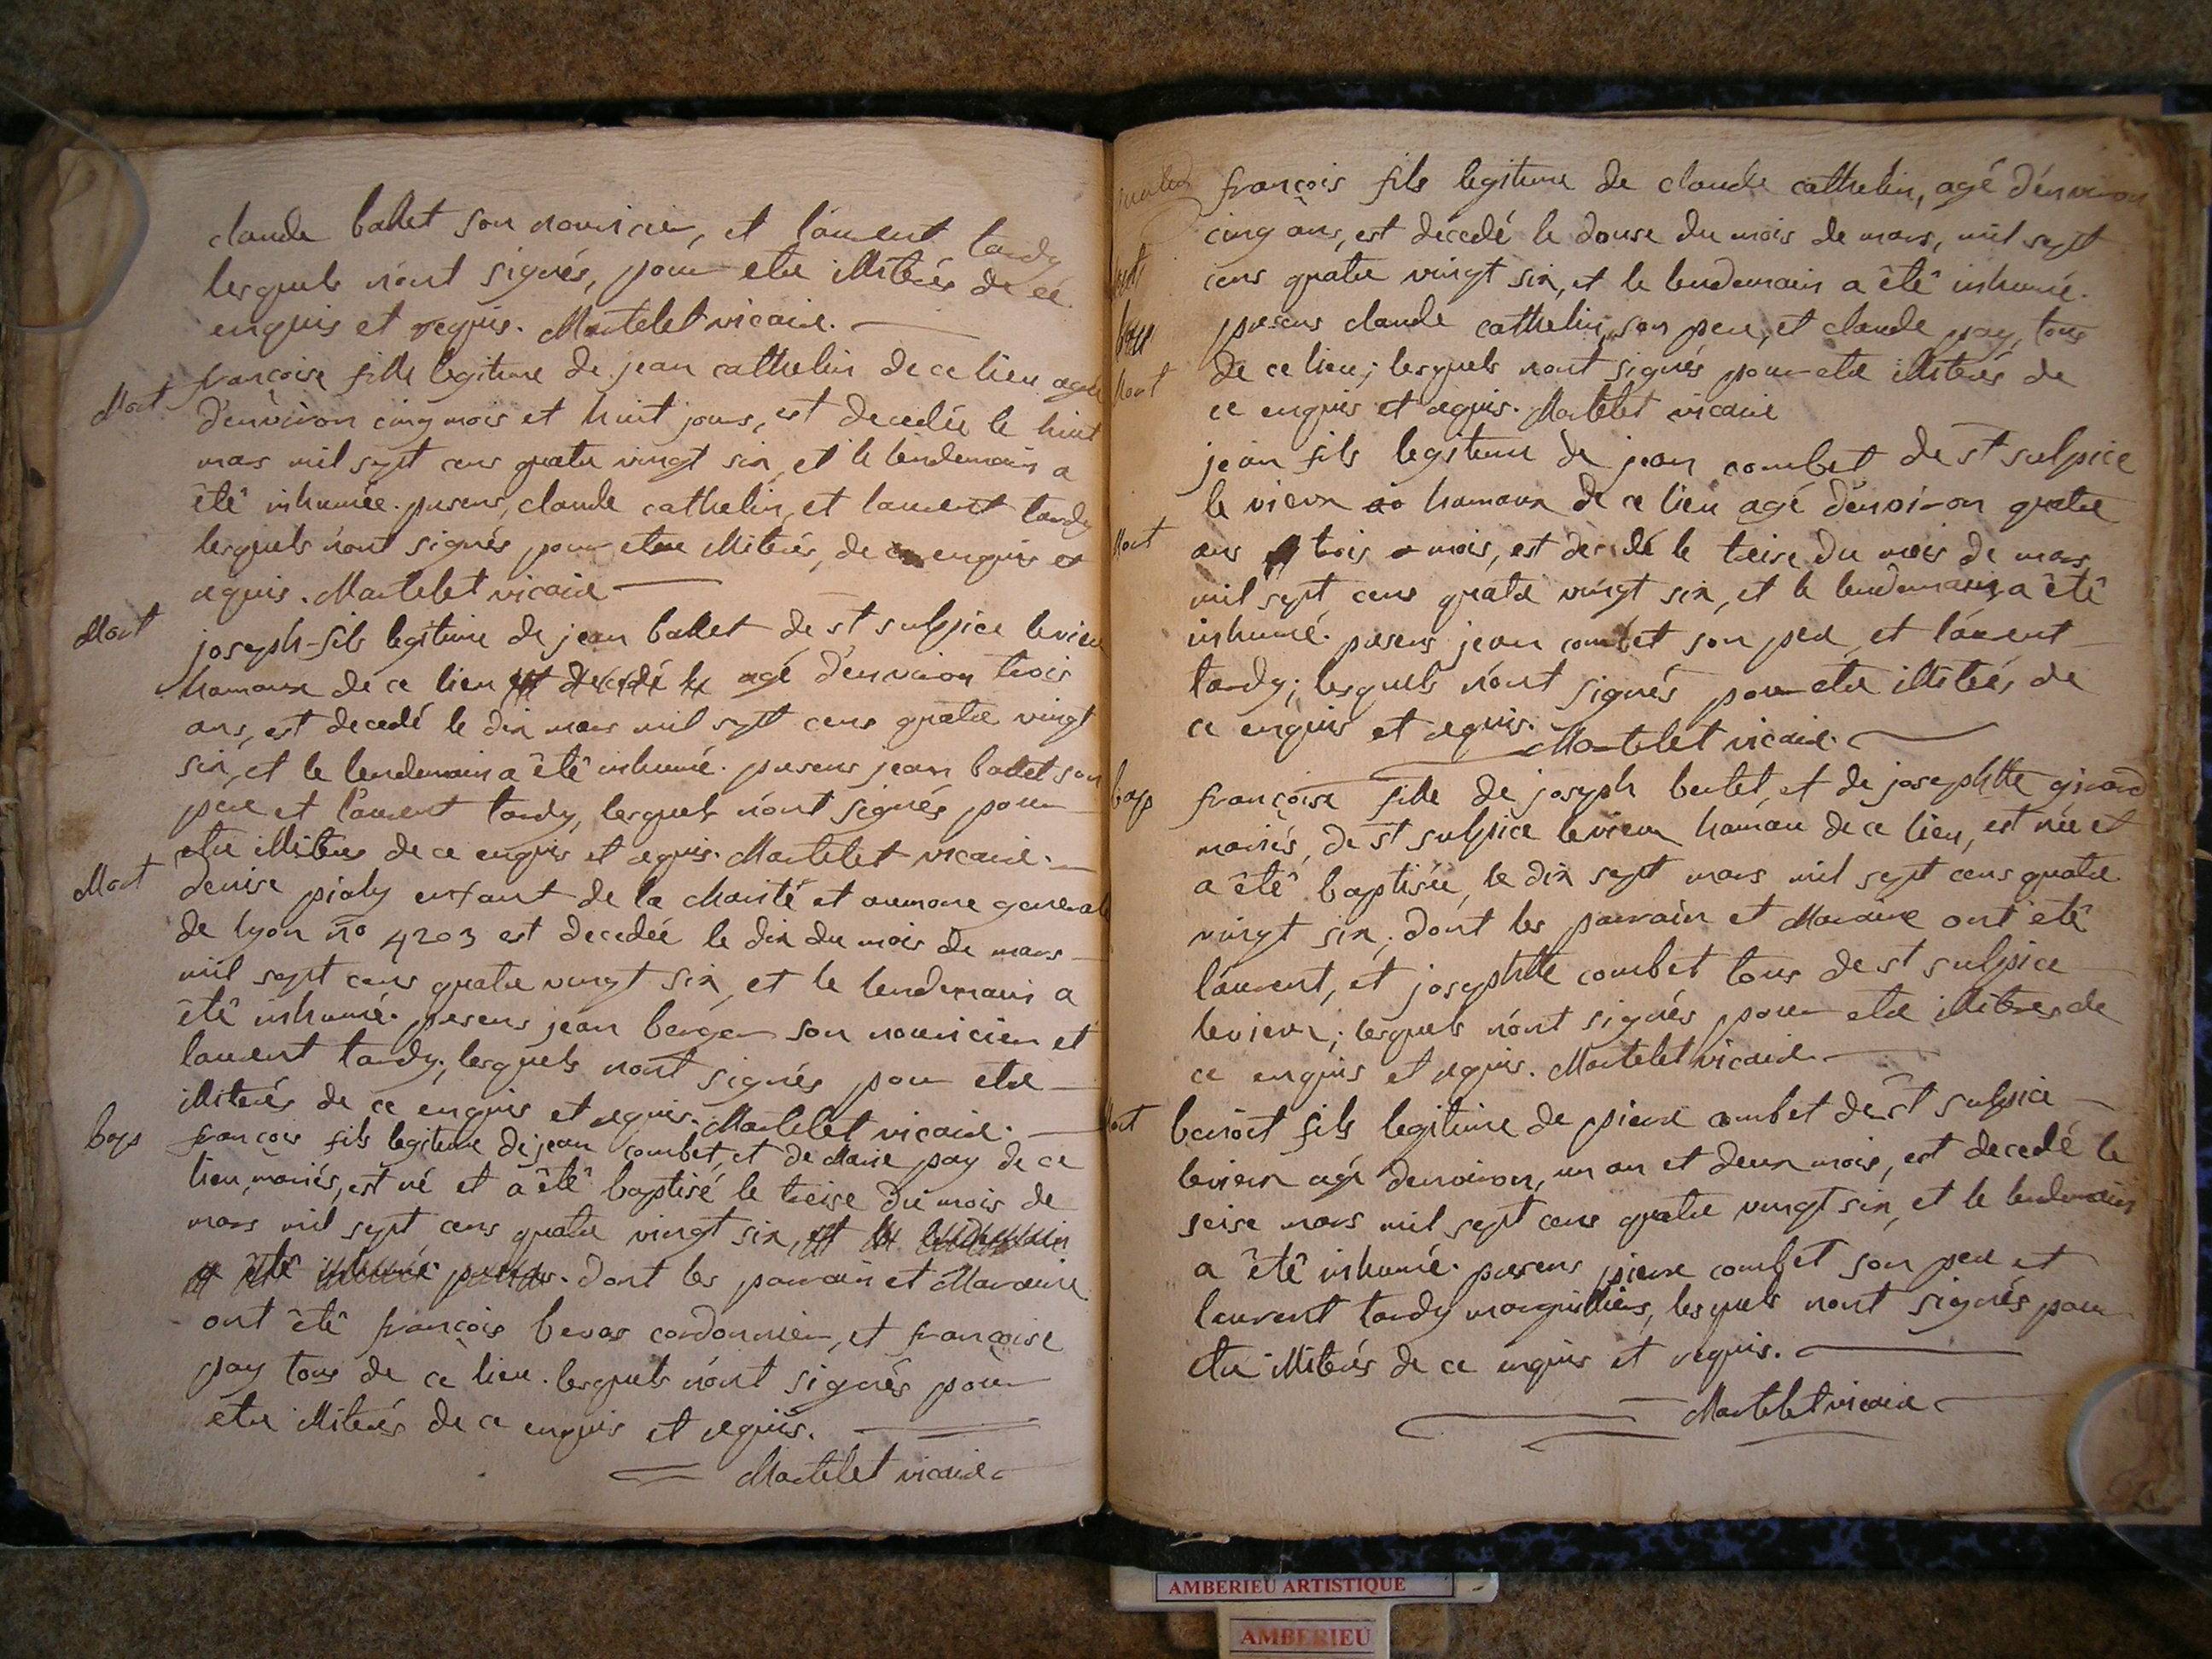 claude ballet son nouricier, et laurent tardy
lesquels n'ont signés, pour etre illiterés de ce
enquis et requis. Martelet vicaire.
Mort
françoise fille legitime de jean cathelin de ce lieu agée
d'environ cinq mois et huit jours, est decedée le huit
mars mil sept cens quatre vingt six, et le lendemain a
été inhumée. presens, claude cathelin, et laurent tardy
lesquels n'ont signés, pour etre illiterés, de ce enquis et
requis. Martelet vicaire
Mort
joseph fils legitime de jean ballet de st sulpice le vieux
hamaux de ce lieu est decedé le agé d'environ trois
ans, est decedé le dix mars mil sept cens quatre vingt
six, et le lendemain a été inhumé. presens jean ballet son
pere et laurent tardy, lesquels n'ont signés pour
etre illiterés de ce enquis et requis. Martelet vicaire.
Mort
denise pialy enfant de la charité et aumone generale
de lyon no 4203 est decedée le dix du mois de mars
mil sept cens quatre vingt six, et le lendemain a
été inhumé. presens jean berger son nouricier et
laurent tardy; lesquels n'ont signés pour etre
illiterés de ce enquis et requis. Martelet vicaire.
bap
françois fils legitime de jean combet, et de Marie pay de ce
lieu, mariés, est né et a été baptisé le treise du mois de
mars mil sept cens quatre vingt six, et le lendemain
a été inhumé presens. dont les parrain et Maraine
ont été françois bevas cordonnier, et françoise
pay tous de ce lieu. lesquels n'ont signés pour
etre illiterés de ce enquis et requis.
Martelet vicaire
françois fils legitime de claude cathelin, agé d'environ
cinq ans, est decedé le douse du mois de mars, mil sept
cens quatre vingt six, et le lendemain a été inhumé.
presens claude cathelin, son pere, et claude pay, tous
de ce lieu; lesquels n'ont signés pour etre illiterés de
ce enquis et requis. Martelet vicaire
Mort
jean fils legitime de jean combet de st sulpice
le vieux hamaux de ce lieu agé d'environ quatre
ans trois mois, est decedé le treise du mois de mars
mil sept cens quatre vingt six, et le lendemain, a été
inhumé. presens jean combet son pere et laurent
tardy; lesquels n'ont signés pour etre illiterés de
ce enquis et requis.
Martelet vicaire.
Mort
bap
françoise fille de joseph bertet, et de josephtte girard
mariés, de st sulpice le vieux hamau de ce lieu, est née et
a été baptisée, le dix sept mars mil sept cens quatre
vingt six; dont les parrain et Maraine ont été
laurent, et josephtte combet tous de st sulpice
levieux; lesquels n'ont signés pour etre illiteres de
ce enquis et requis. Martelet vicaire
Mort
benoit fils legitime de pierre combet de st sulpice
levieux agé denviron, un an et deux mois, est decedé le
seise mars mil sept cens quatre vingt six, et le lendemain
a été inhumé. presens pierre combet son pere et
laurent tardy marguilliers, lesquels n'ont signés pour
etre illiterés de ce enquis et requis.
Martelet vicaire
AMBERIEU ARTISTIQUE
AMBERIEU